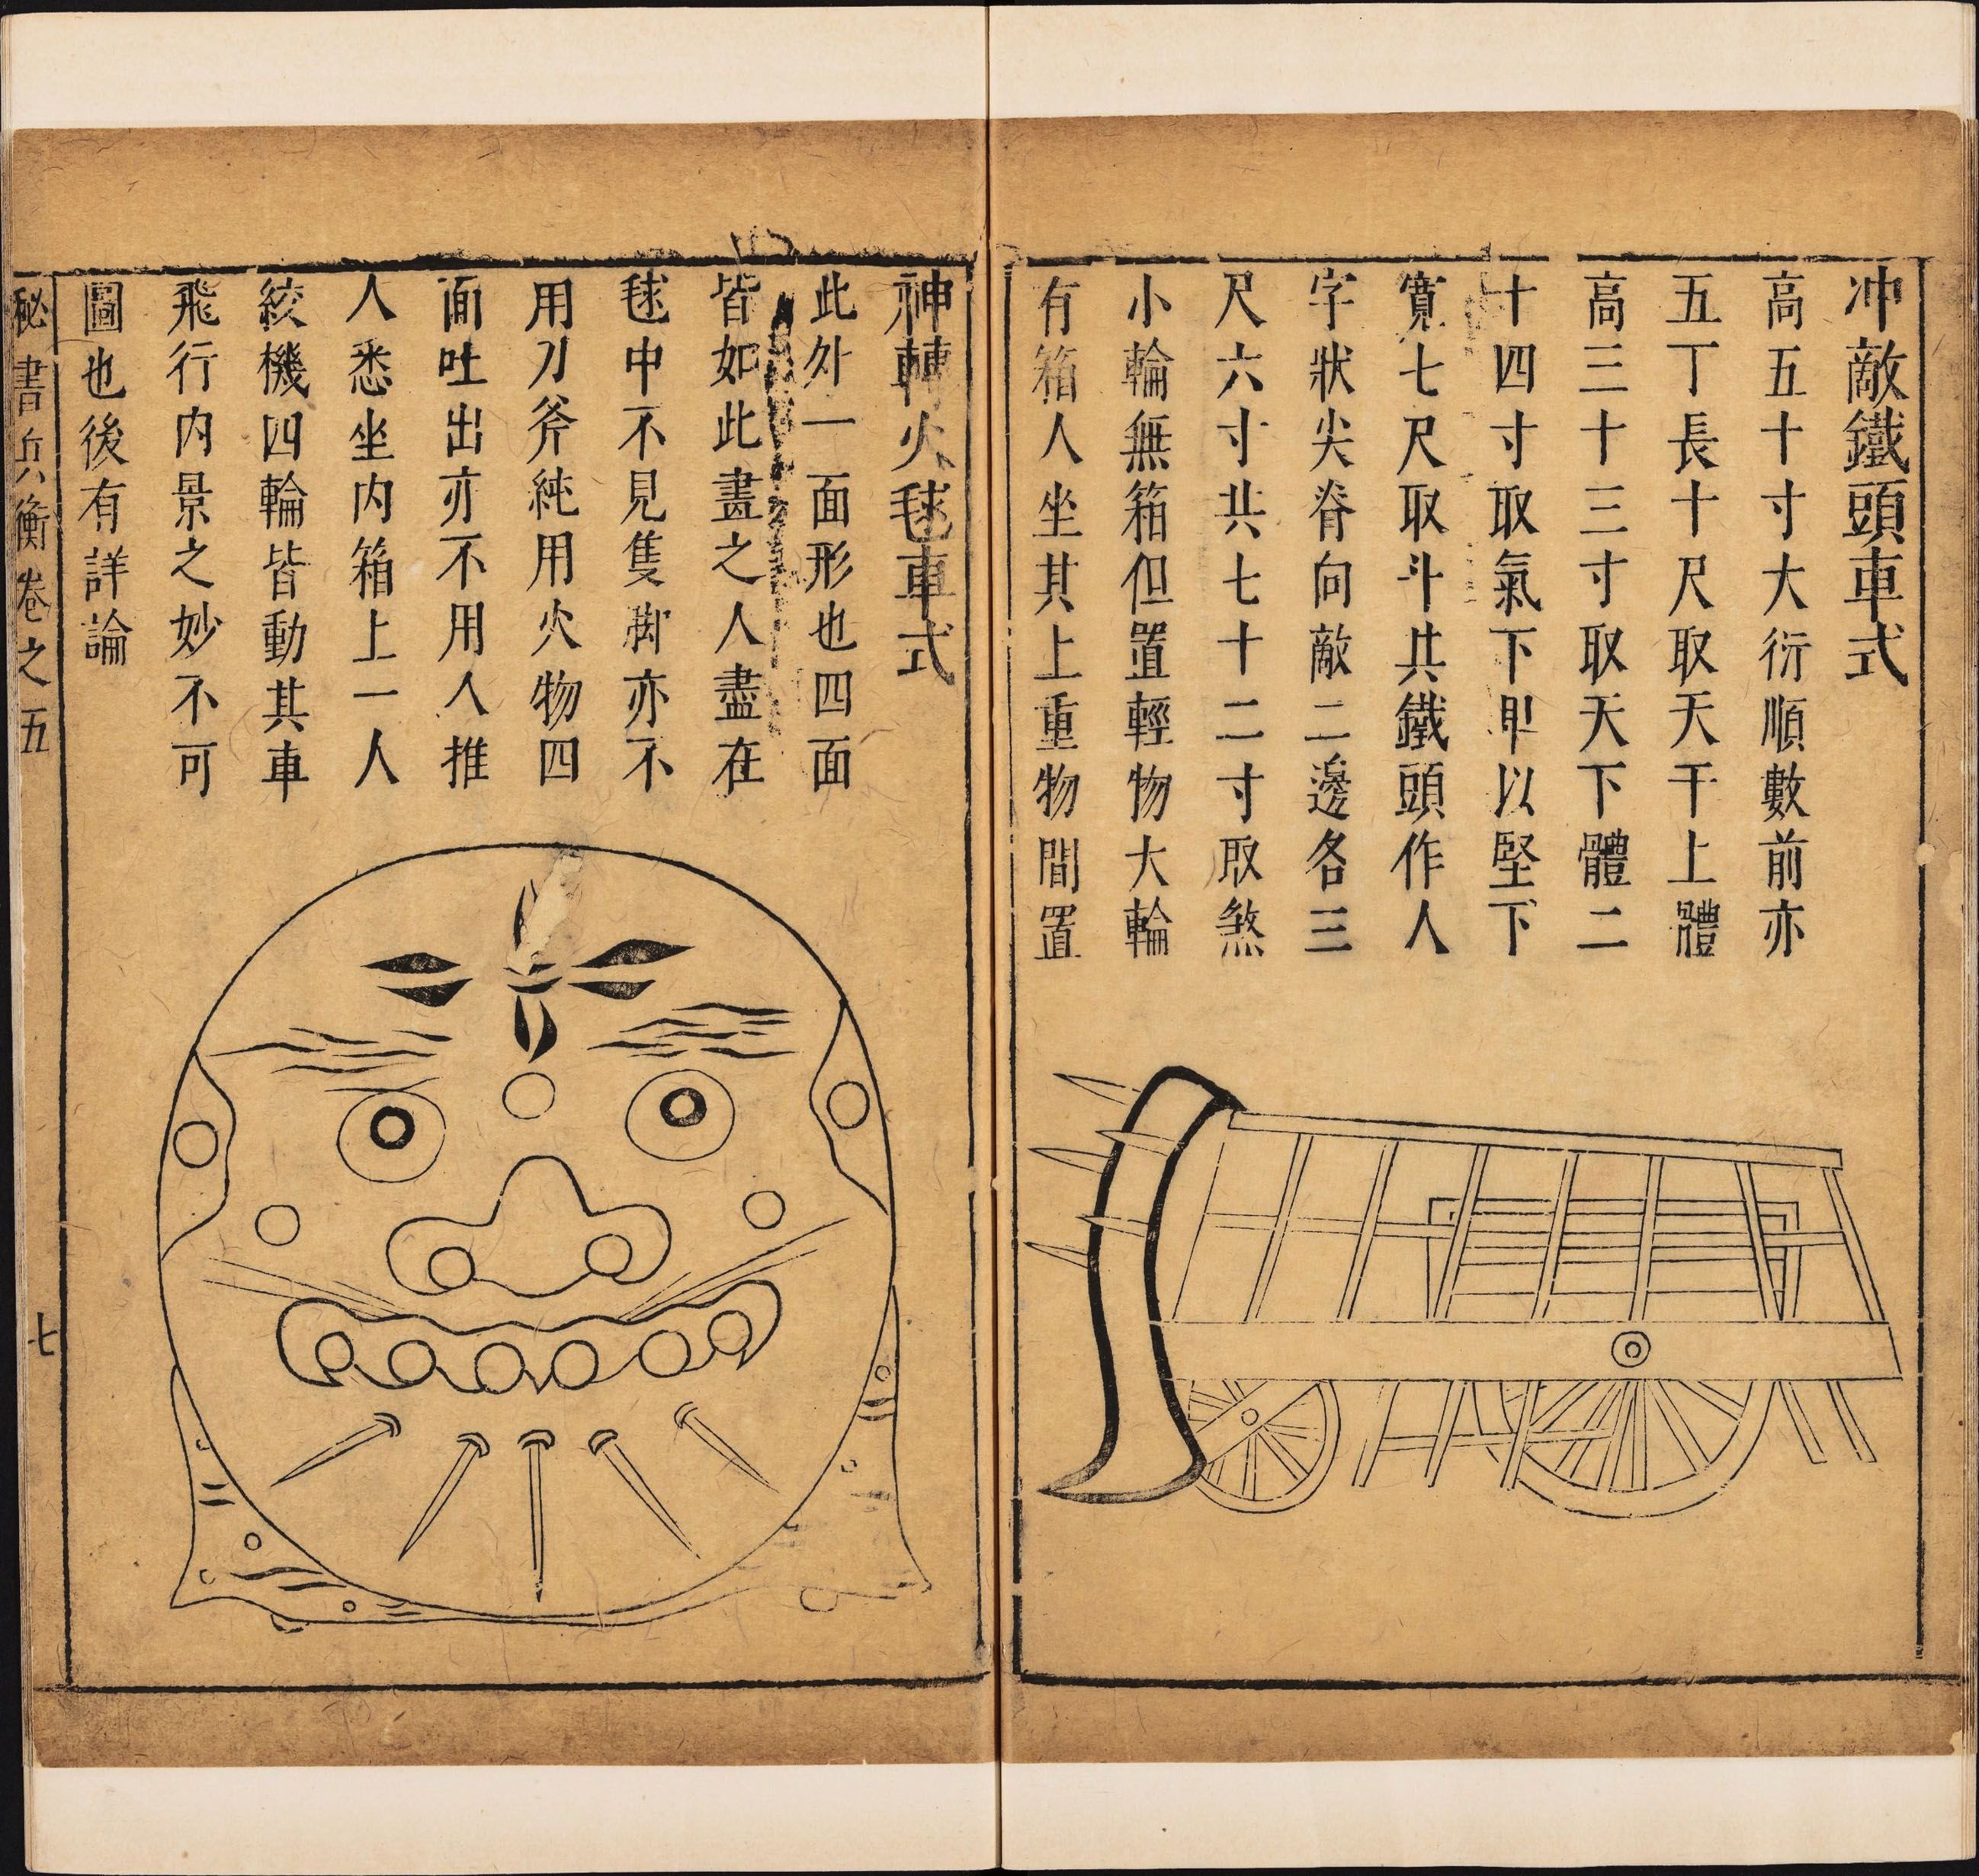 冲敵鐵頭車式
高五十寸大衍順數前亦
五丁長十尺取天干上體
高三十三寸取天下體二
十四寸取氣下甲以堅下
寬七尺取斗共鐵頭作人
字狀尖脊向敵二邊各三
尺六寸共七十二寸取煞
小輪無箱但置輕物大輪
有箱人坐其上重物間置
神轉火毬車式
此外一面形也四面
皆如此畫之人盡在
毬中不見隻脚亦不
用刀斧純用火物四
面吐出亦不用人推
人悉坐内箱上一人
絞機四輪皆動其車
飛行内景之妙不可
圖也後有詳論
秘書兵衡卷之五
七